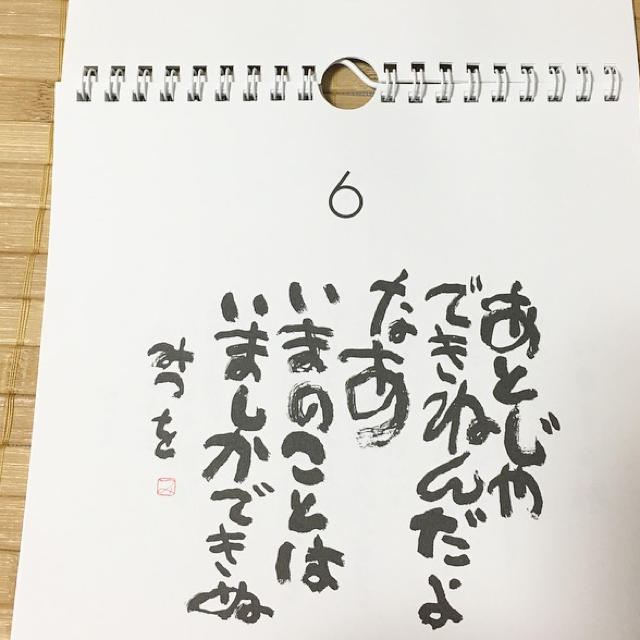 6
あとじゃ
できねんだよ
なあ
いまのことは
いましかできぬ
みつを